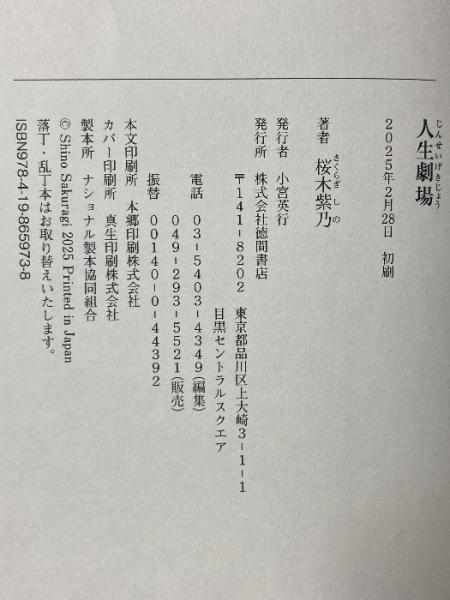 じんせいげきじょう
人生劇場
2025年2月28日 初刷
さくらぎ しの
著者 桜木紫乃
発行者 小宮英行
発行所 株式会社徳間書店
〒141-8202 東京都品川区上大崎3-1-1
目黒セントラルスクエア
電話 03-5403-4349(編集)
049-293-5521(販売)
振替 00140-0-44392
本文印刷所 本郷印刷株式会社
カバー印刷所 真生印刷株式会社
製本所 ナショナル製本協同組合
© Shino Sakuragi 2025 Printed in Japan
落丁・乱丁本はお取り替えいたします。
ISBN978-4-19-865973-8